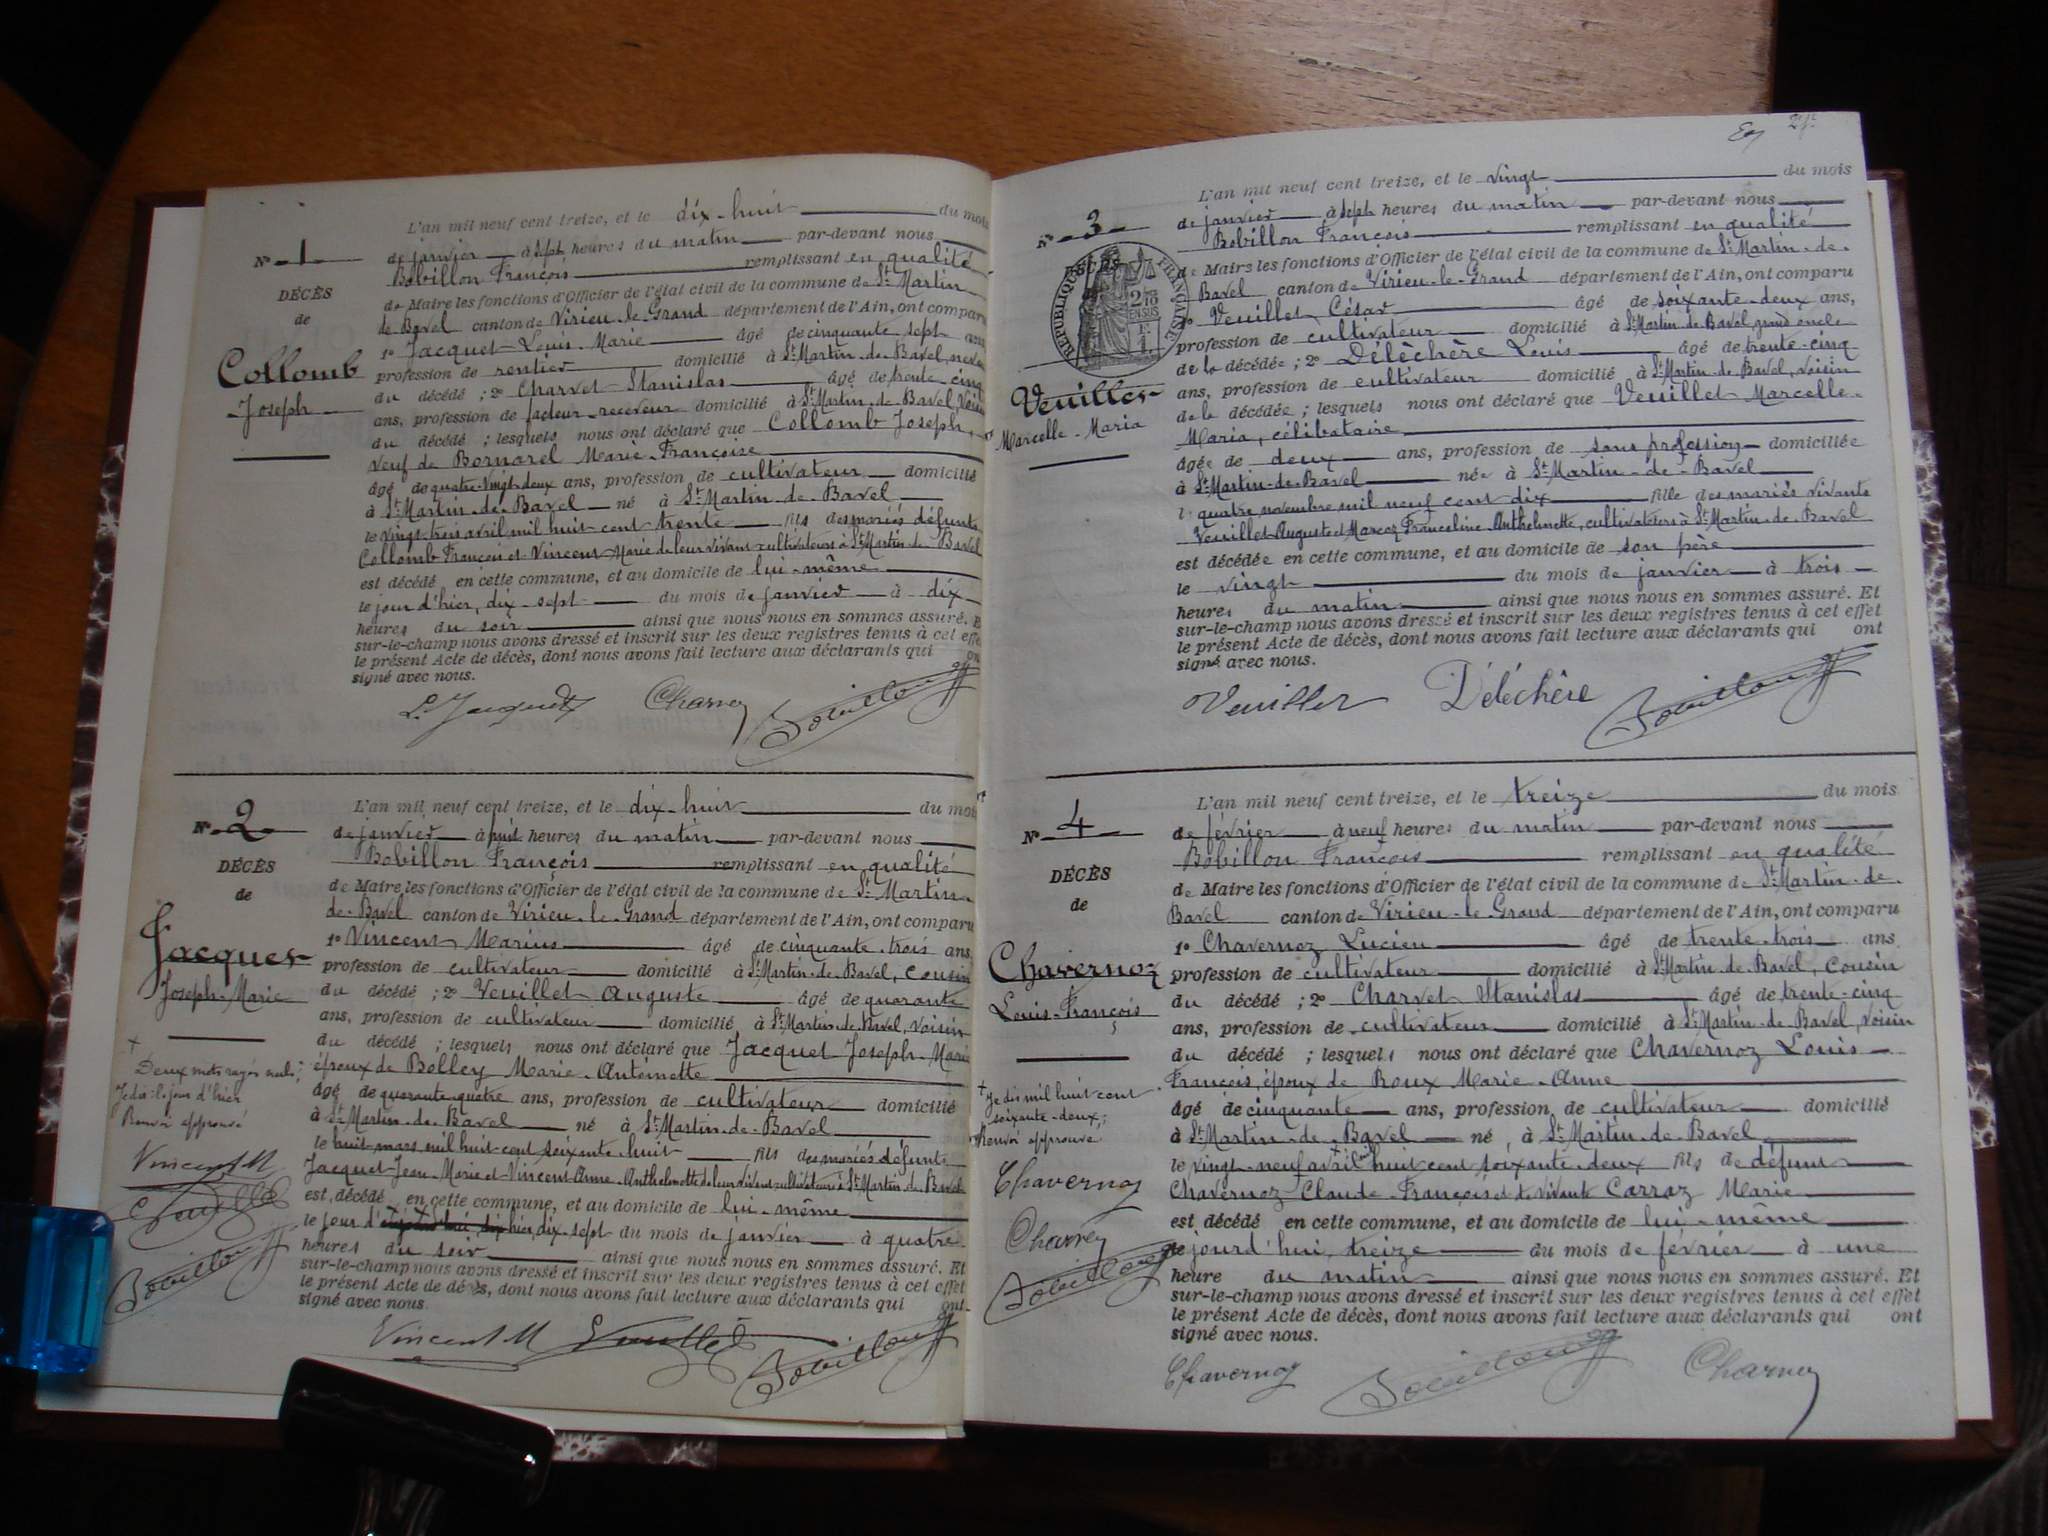 L'an mil neuf cent treize, et le dix-huit du mois
de janvier à sept heures du matin par-devant nous
N° 1
Bobillon François remplissant en qualité
DÉCÈS
de Maire les fonctions d'Officier de l'état civil de la commune de St Martin
de
de Bavel canton de Virieu-le-Grand département de l'Ain, ont comparu
1° Jacquet Louis Marie âgé de cinquante sept ans
Collomb
profession de rentier domicilié à St Martin-de-Bavel, neveu
Joseph
du décédé ; 2° Charvet Stanislas âgé de trente-cinq
ans, profession de facteur-receveur domicilié à St Martin-de-Bavel, voisin
du décédé ; lesquels nous ont déclaré que Collomb Joseph,
veuf de Bornarel Marie-Françoise
âgé de quatre-vingt-deux ans, profession de cultivateur domicilié
à St Martin-de-Bavel né à St Martin-de-Bavel
le vingt-trois avril mil huit cent trente fils des mariés défunts
Collomb François et Vincent Marie de leur vivant cultivateurs à St Martin-de-Bavel
est décédé en cette commune, et au domicile de lui-même
le jour d'hier, dix-sept du mois de janvier à dix
heures du soir ainsi que nous nous en sommes assuré. Et
sur-le-champ nous avons dressé et inscrit sur les deux registres tenus à cet effet
le présent Acte de décès, dont nous avons fait lecture aux déclarants qui ont
signé avec nous.
L. Jacquet Charvet Bobillon
L'an mil neuf cent treize, et le dix-huit du mois
N° 2
de janvier à huit heures du matin par-devant nous
Bobillon François remplissant en qualité
DÉCÈS
de Maire les fonctions d'Officier de l'état civil de la commune de St Martin-
de
de-Bavel canton de Virieu-le-Grand département de l'Ain, ont comparu
1° Vincent Marius âgé de cinquante-trois ans,
Jacquet
profession de cultivateur domicilié à St Martin-de-Bavel, cousin
Joseph-Marie
du décédé ; 2° Veuillet Auguste âgé de quarante
ans, profession de cultivateur domicilié à St Martin-de-Bavel, voisin
du décédé ; lesquels nous ont déclaré que Jacquet Joseph-Marie
époux de Belley Marie-Antoinette
âgé de quarante-quatre ans, profession de cultivateur domicilié
à St Martin-de-Bavel né à St Martin-de-Bavel
le huit mars mil huit cent soixante huit fils des mariés défunts
Jacquet Jean-Marie et Vincent Anne-Anthelmette de leur vivant cultivateurs à St Martin-de-Bavel
est décédé en cette commune, et au domicile de lui-même
le jour d'hier, dix-sept du mois de janvier à quatre
heures du soir ainsi que nous nous en sommes assuré. Et
sur-le-champ nous avons dressé et inscrit sur les deux registres tenus à cet effet
le présent Acte de décès, dont nous avons fait lecture aux déclarants qui ont
signé avec nous
Deux mots rayés nuls ;
Je dis : le jour d'hier
Renvoi approuvé
Vincent M
Veuillet
Bobillon
Vincent M Veuillet Bobillon
L'an mil neuf cent treize, et le vingt du mois
N° 3
de janvier à sept heures du matin par-devant nous
Bobillon François remplissant en qualité
de Maire les fonctions d'Officier de l'état civil de la commune de St Martin-de-
Bavel canton de Virieu-le-Grand département de l'Ain, ont comparu
RÉPUBLIQUE FRANÇAISE
2/10 EN SUS
1° Veuillet César âgé de soixante-deux ans,
profession de cultivateur domicilié à St Martin-de-Bavel, grand oncle
de la décédée ; 2° Délèchère Louis âgé de trente-cinq
Veuillet
ans, profession de cultivateur domicilié à St Martin-de-Bavel, voisin
Marcelle-Maria
de la décédée ; lesquels nous ont déclaré que Veuillet Marcelle-
Maria, célibataire
âgée de deux ans, profession de sans profession domiciliée
à St Martin-de-Bavel née à St Martin-de-Bavel
le quatre novembre mil neuf cent dix fille des mariés vivants
Veuillet Auguste et Marcoz Franceline-Anthelmette, cultivateurs à St Martin-de-Bavel
est décédée en cette commune, et au domicile de son père
le vingt du mois de janvier à trois
heures du matin ainsi que nous nous en sommes assuré. Et
sur-le-champ nous avons dressé et inscrit sur les deux registres tenus à cet effet
le présent Acte de décès, dont nous avons fait lecture aux déclarants qui ont
signé avec nous.
Veuillet Déléchère Bobillon
L'an mil neuf cent treize, et le treize du mois
N° 4
de février à neuf heures du matin par-devant nous
Bobillon François remplissant en qualité
DÉCÈS
de Maire les fonctions d'Officier de l'état civil de la commune de St Martin-de-
de
Bavel canton de Virieu-le-Grand département de l'Ain, ont comparu
1° Chavernoz Lucien âgé de trente-trois ans
Chavernoz
profession de cultivateur domicilié à St Martin-de-Bavel, cousin
Louis-François
du décédé ; 2° Charvet Stanislas âgé de trente-cinq
ans, profession de cultivateur domicilié à St Martin-de-Bavel, voisin
du décédé ; lesquels nous ont déclaré que Chavernoz Louis-
François, époux de Roux Marie-Anne
âgé de cinquante ans, profession de cultivateur domicilié
à St Martin-de-Bavel né à St Martin-de-Bavel
le vingt-neuf avril huit cent soixante-deux fils de défunt
Chavernoz Claude-François et de vivante Carraz Marie
est décédé en cette commune, et au domicile de lui-même
le jourd'hui treize du mois de février à une
heure du matin ainsi que nous nous en sommes assuré. Et
sur-le-champ nous avons dressé et inscrit sur les deux registres tenus à cet effet
le présent Acte de décès, dont nous avons fait lecture aux déclarants qui ont
signé avec nous.
Je dis mil huit cent
soixante-deux ;
Renvoi approuvé
Chavernoz
Charvet
Bobillon
Chavernoz Bobillon Charvet